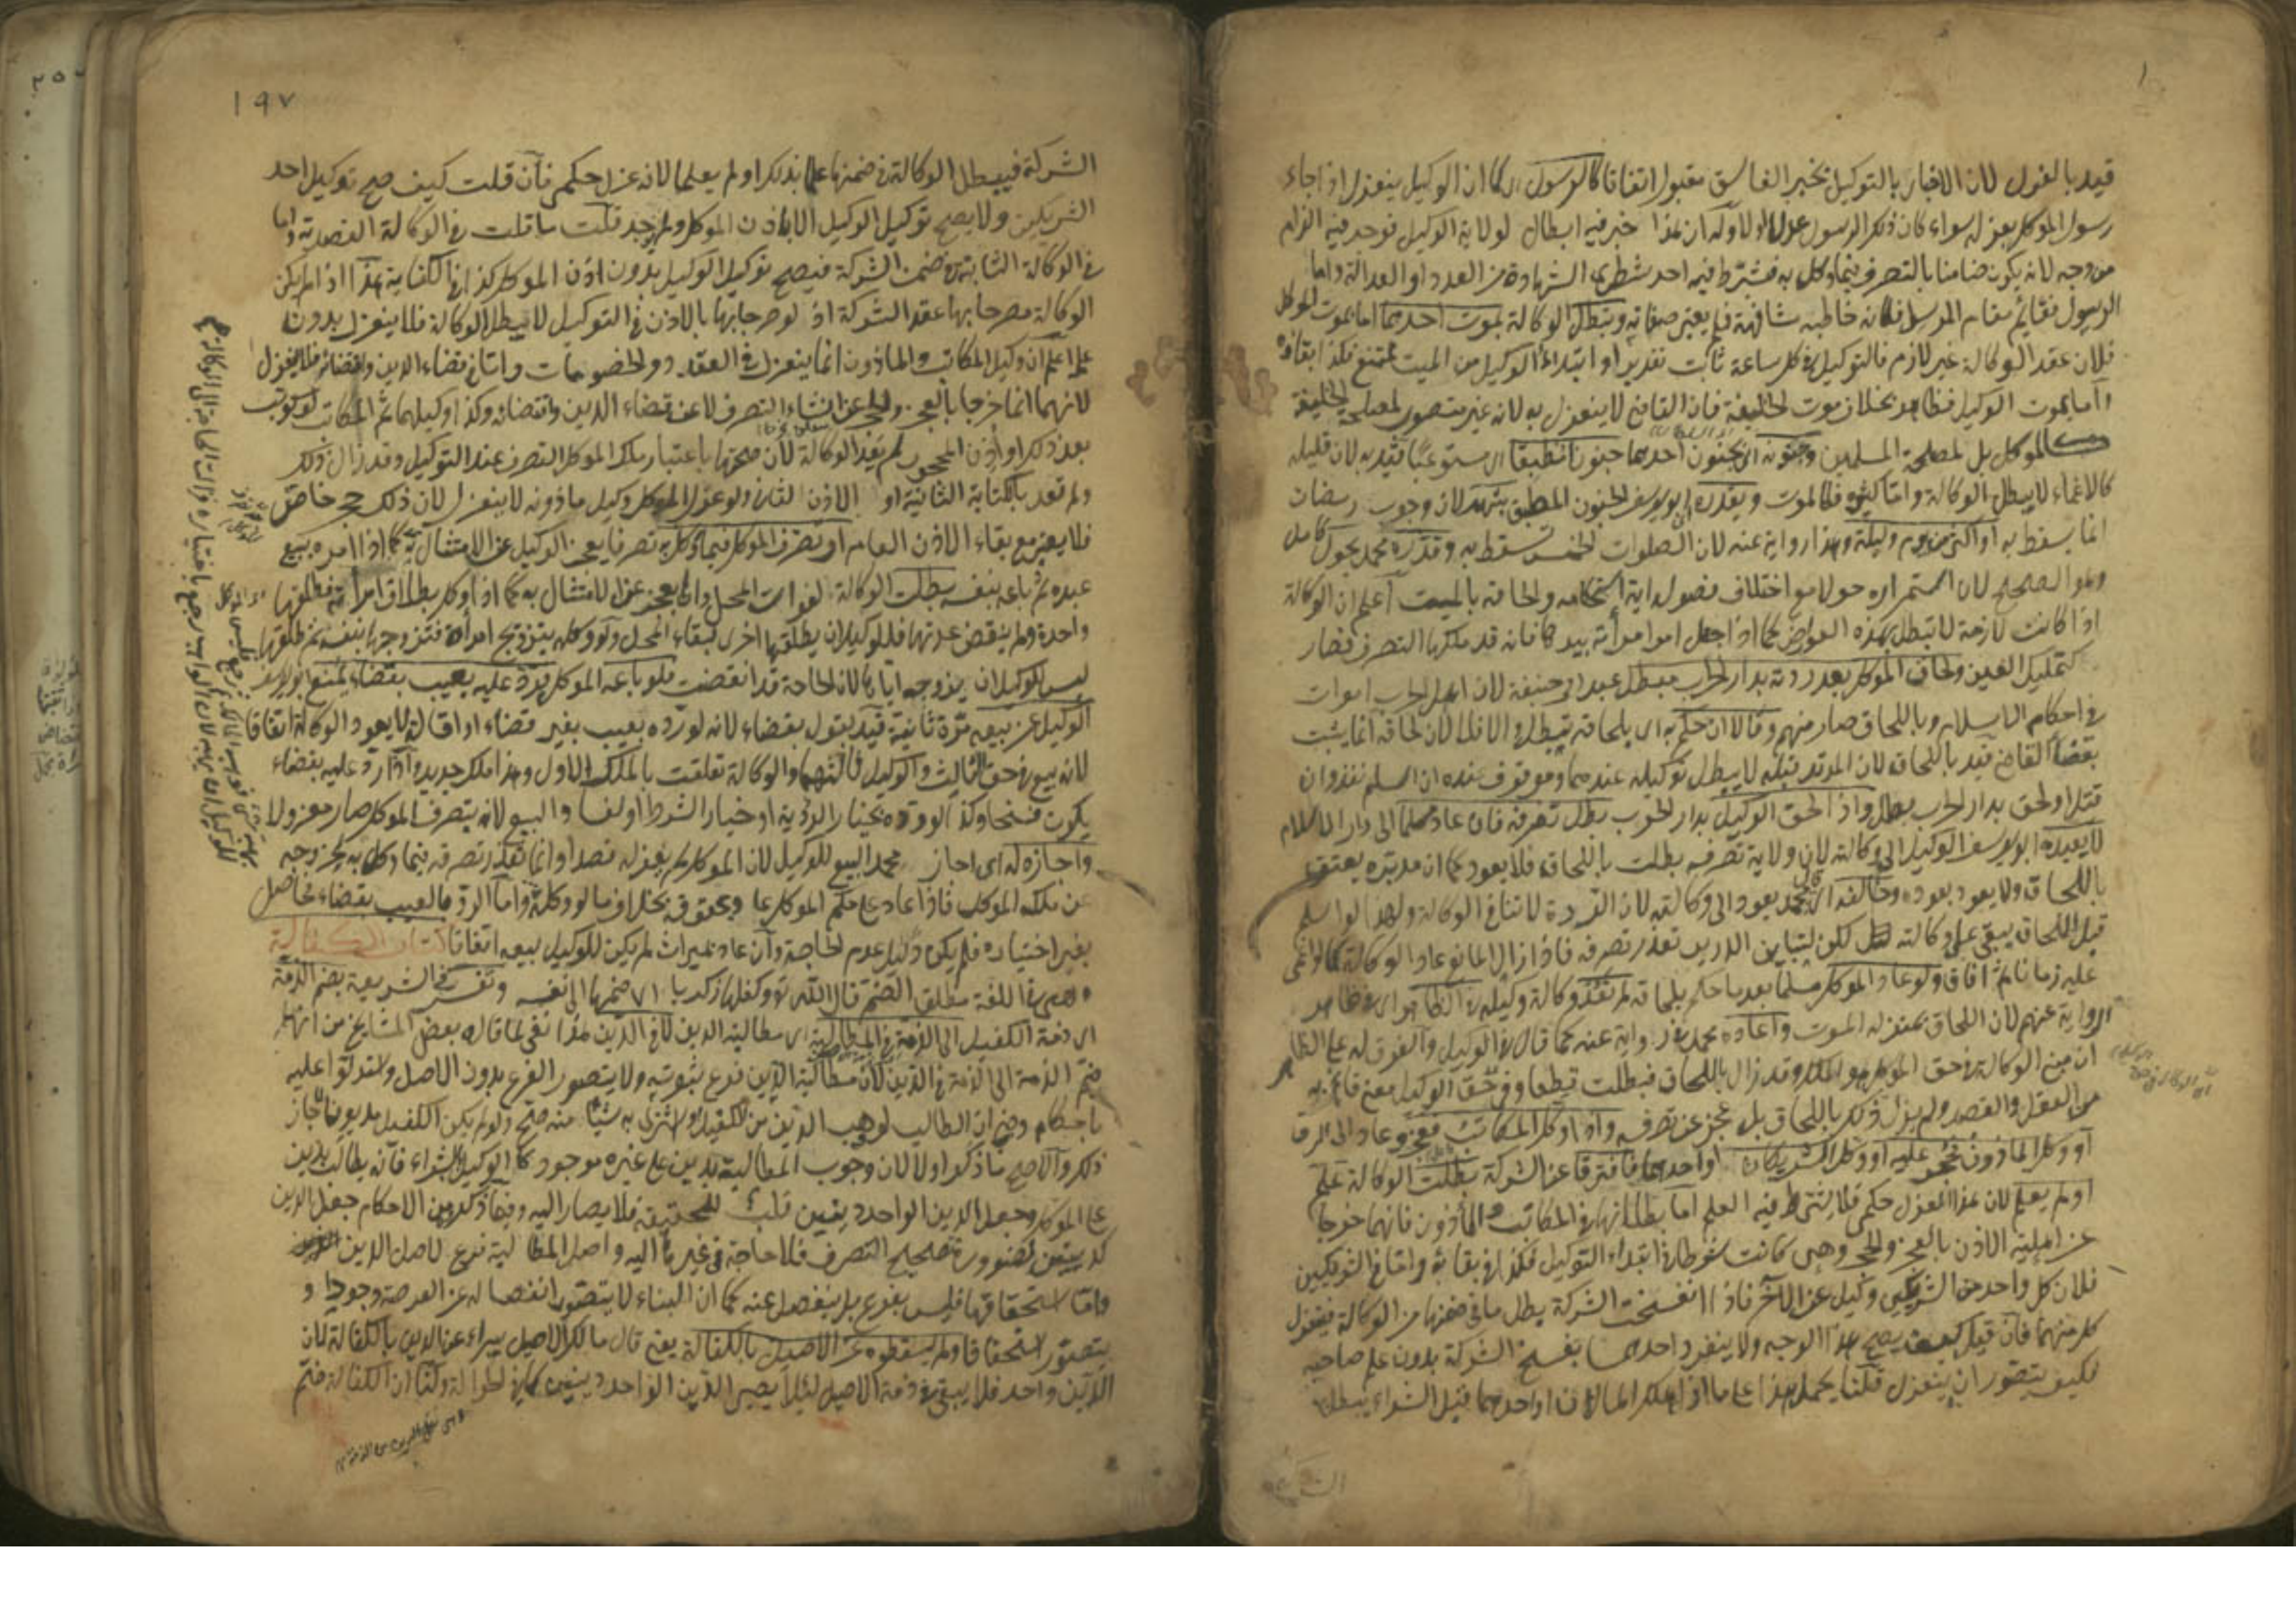 قيد بالعزل لان الاخبار بالتوكيل بخبر الفاسق مقبول اتفاقا كالرسول اى كما ان الوكيل ينعزل اذا جاء
رسول الموكل بعزله سواء كان ذلك الرسول عدلا اولا وله ان هذا خبر فيه ابطال لولاية الوكيل فوجد فيه الزام
من وجه لانه يكون ضامنا بالتصرف فيما وكل به فشترط فيه احد شطرى الشهادة من العدد او العدالة واما
الرسول فقائم مقام المرسل فكانه خاطبه مشافهة فلم يعتبر صفاته وتبطل الوكالة بموت احدهما اما بموت الموكل
فلان عقد الوكالة غير لازم فالتوكيل فى كل ساعة ثابت تقديرا وابتداء التوكيل من الميت ممتنع فكذا بقاؤه
واما بموت الوكيل فظاهر بخلاف موت الخليفة فان القاضى لا ينعزل به لانه غير متصور لمصلحة الخليفة
الموكل بل لمصلحة المسلمين وجنونه اى بجنون احدهما جنونا مطبقا اى مستوعبا قيد به لان قليله
كالاغماء لا يبطل الوكالة واما كثيره فكالموت ويقدره ابو يوسف الجنون المطبق بشهر لان وجوب رمضان
انما يسقط به او اكثر من يوم وليلة وهذا رواية عنه لان الصلوات الخمس تسقط به وقدره محمد بحول كامل
وهو الصحيح لان استمراره حولا مع اختلاف فصوله اية استحكامه والحاقه بالميت اعلم ان الوكالة
اذا كانت لازمة لا تبطل بهذه العوارض كما اذا جعل امر امرأته بيدها فانه قد ملكها التصرف فصار
كتمليك العين ولحاق الموكل بعد ردته بدار الحرب مبطل عند ابى حنيفة لان اهل الحرب اموات
فى احكام الاسلام وباللحاق صار منهم وقالا ان حكم به اى بلحاقه تبطل والا فلا لان لحاقه انما يثبت
بقضاء القاضى قيد باللحاق لان المرتد قبله لا يبطل توكيله عندهما وموقوف عنده ان اسلم نفذ وان
قتل او لحق بدار الحرب بطل واذا لحق الوكيل بدار الحرب بطل تصرفه فان عاد مسلما الى دار الاسلام
لا يعيده ابو يوسف الوكيل الى وكالته لان ولاية تصرفه بطلت باللحاق فلا يعود كما ان مدبره يعتق
باللحاق ولا يعود بعوده وخالفه اى محمد يعود الى وكالته لان الردة لا تنافى الوكالة ولهذا لو اسلم
قبل اللحاق يبقى على وكالته لكن لتباين الدارين تعذر تصرفه فاذا زال المانع عاد الوكالة كما لو اغمى
عليه زمانا ثم افاق ولو عاد الموكل مسلما بعد ما حكم بلحاقه لم تعد وكالة وكيله فى الظاهر اى ظاهر
الرواية عنهم لان اللحاق بمنزلة الموت واعاده محمد فى رواية عنه كما قال فى الوكيل والفرق له على الظاهر
ان مبنى الوكالة فى حق الموكل هو الملك وقد زال باللحاق فبطلت قطعا وفى حق الوكيل معنى قائم به
من العقل والقصد ولم يزل ذلك باللحاق بل عجز عن تصرفه واذا وكل المكاتب فعجز وعاد الى الرق
او وكل الماذون فحجر عليه او وكل الشريكان او احدهما فافترقا عن الشركة بطلت الوكالة علم
او لم يعلم لان هذا العزل حكمى فلا يشترط فيه العلم اما بطلانها فى المكاتب والمأذون فانهما خرجا
عن اهلية الاذن بالعجز والحجر وهى كانت شرطا فى ابتداء التوكيل فكذا فى بقائه واما فى الشريكين
فلان كل واحد من الشريكين وكيل عن الآخر فاذا انفسخت الشركة يبطل ما فى ضمنها من الوكالة فينعزل
كل منهما فان قيل كيف يصح هذا الوجه ولا ينفرد احدهما بفسخ الشركة بدون علم صاحبه
فكيف يتصور ان ينعزل قلنا يحمل هذا على ما اذا هلك المالان او احدهما قبل الشراء يبطل
١٩٧
الشركة فيبطل الوكالة فى ضمنها علما بذلك او لم يعلما لانه عزل حكمى فان قلت كيف صح توكيل احد
الشريكين ولا يصح توكيل الوكيل الا باذن الموكل ولم يوجد قلت ما قلت فى الوكالة القصدية واما
فى الوكالة الثابتة فى ضمن الشركة فيصح توكيل الوكيل بدون اذن الموكل كذا فى الكفاية هذا اذا لم يكن
الوكالة مصرحا بها عقد الشركة اذ لو صرحا بها بالاذن فى التوكيل لا يبطل الوكالة فلا ينعزل بدون
علم اعلم ان وكيل المكاتب والماذون انما ينعزل فى العقود والخصومات واما فى قضاء الدين واقتضائه فلا ينعزل
لانهما انما خرجا بالعجز والحجر عن انشاء التصرف لا عن قضاء الدين واقتضائه وكذا وكيلهما ثم المكاتب لو كوتب
بعد ذلك او اذن المحجور لم يعد الوكالة لان صحتها باعتبار ملك الموكل التصرف عند التوكيل وقد زال ذلك
ولم تعد بالكتابة الثانية او الاذن الثانى ولو عزل الموكل وكيل ماذونه لا ينعزل لان ذلك حجر خاص
فلا يعتبر مع بقاء الاذن العام او تصرف الموكل فيما وكل به تصرفا يعجز الوكيل عن الامتثال به كما اذا امره ببيع
عبده ثم باعه بنفسه بطلت الوكالة لفوات المحل والا يعجز عن الامتثال به كما اذا وكل بطلاق امرأته فطلقها
واحدة ولم ينقض عدتها فللوكيل ان يطلقها اخرى لبقاء المحل ولو وكله بتزويج امرأة فتزوجها بنفسه ثم طلقها
ليس للوكيل ان يزوجه اياها لان الحاجة قد انقضت فلو باعه الموكل فرد عليه بعيب بقضاء يمنع ابو يوسف
الوكيل عن بيعه مرة ثانية قيد بقوله بقضاء لانه لو رده بعيب بغير قضاء او اقالة لا يعود الوكالة اتفاقا
لانه بيع فى حق الثالث والوكيل ثالثهما والوكالة تعلقت بالملك الاول وهذا ملك جديد واذا رد عليه بقضاء
يكون فسخا وكذا لو رده بخيار الرؤية او خيار الشرط او لفساد البيع لانه بتصرف الموكل صار معزولا
واجازه له اى اجاز محمد البيع للوكيل لان الموكل لم يعزله قصدا وانما تعذر تصرفه فيما وكل به لخروجه
عن ملك الموكل فاذا عاد على حكم الموكل عاد بحقوقه بخلاف ما لو وكله واما الرد بالعيب بقضاء فحاصل
بغير اختياره فلم يكن دليل عدم الحاجة وان عاد بميراث لم يكن للوكيل بيعه اتفاقا كتاب الكفالة
وهى فى اللغة مطلق الضم قال الله تع وكفلها زكريا اى ضمها الى نفسه وتفسر فى الشريعة بضم الذمة
اى ذمة الكفيل الى الذمة فى المطالبة اى مطالبة الدين لا فى الدين هذا نفى لما قاله بعض المشايخ من انها
ضم الذمة الى الذمة فى الدين لان مطالبة الدين فرع ثبوته ولا يتصور الفرع بدون الاصل واستدلوا عليه
باحكام وهى ان الطالب لو وهب الدين من الكفيل او اشترى به شيئا منه صح ولو لم يكن الكفيل مديونا لما جاز
ذلك والاصح ما ذكر اولا لان وجوب المطالبة بدين على غيره موجود كالوكيل بالشراء فانه يطالب بدين
على الموكل وجعل الدين الواحد دينين قلب للحقيقة فلا يصار اليه وفيما ذكر من الاحكام جعل الدين
كدينين لضرورة تصحيح التصرف فلا حاجة فى غيرها اليه واصل المطالبة فرع لاصل الدين
واما استحقاقها فليس بفرع بل ينفصل عنه كما ان البناء لا يتصور انفصاله عن العرصة وجودا و
يتصور استحقاقا ولم يسقطوه عن الاصيل بالكفالة يعنى قال مالك الاصيل يبرأ عن الدين بالكفالة لان
الدين واحد فلا يبقى فى ذمة الاصيل لئلا يصير الدين الواحد دينين كما فى الحوالة ولنا ان الكفالة ضم